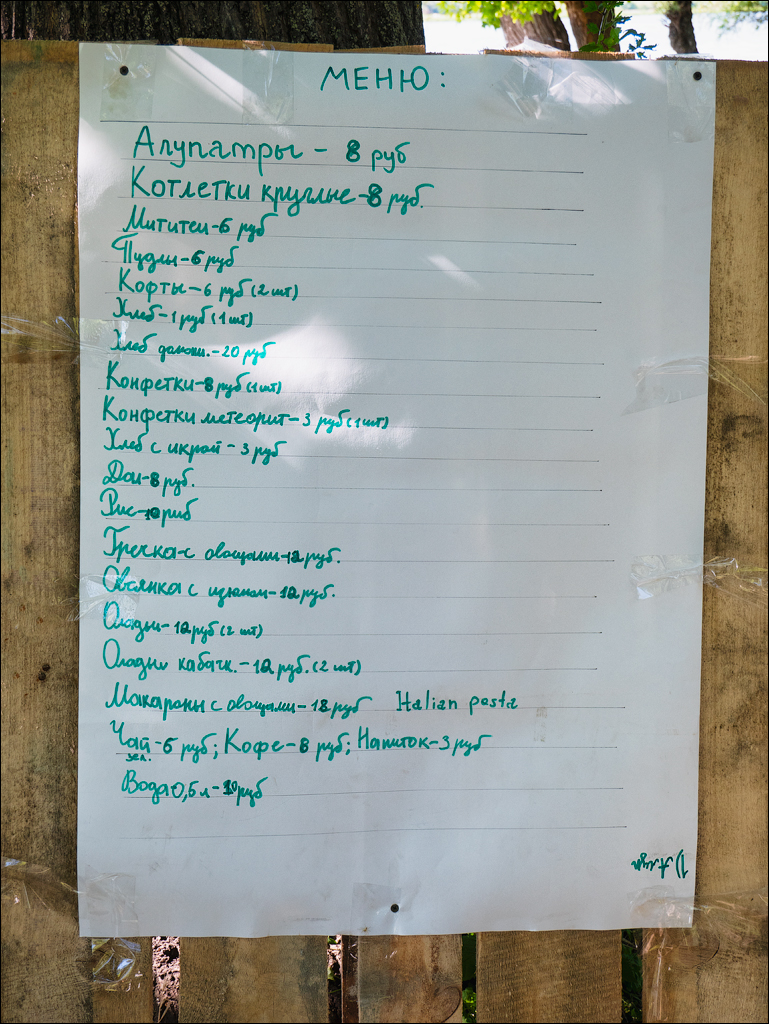 МЕНЮ:
Алупатры - 8 руб
Котлетки круглые-8 руб.
Мититеи-6 руб
Пудлы-6 руб
Кофты-6 руб (2 шт)
Хлеб-1 руб (1 шт)
Хлеб домаш.-20 руб
Конфетки-8 руб (1шт)
Конфетки метеорит-3 руб (1шт)
Хлеб с икрой-3 руб
Дал-8 руб.
Рис-10 руб
Гречка-с овощами-12 руб.
Овсянка с изюмом-12 руб.
Оладьи-12 руб (2 шт)
Оладьи кабачк.-12 руб. (2 шт)
Макароны с овощами-18 руб Italian pasta
Чай-6 руб; Кофе-8 руб; Напиток-3 руб
зел.
Вода 0,5 л-10 руб